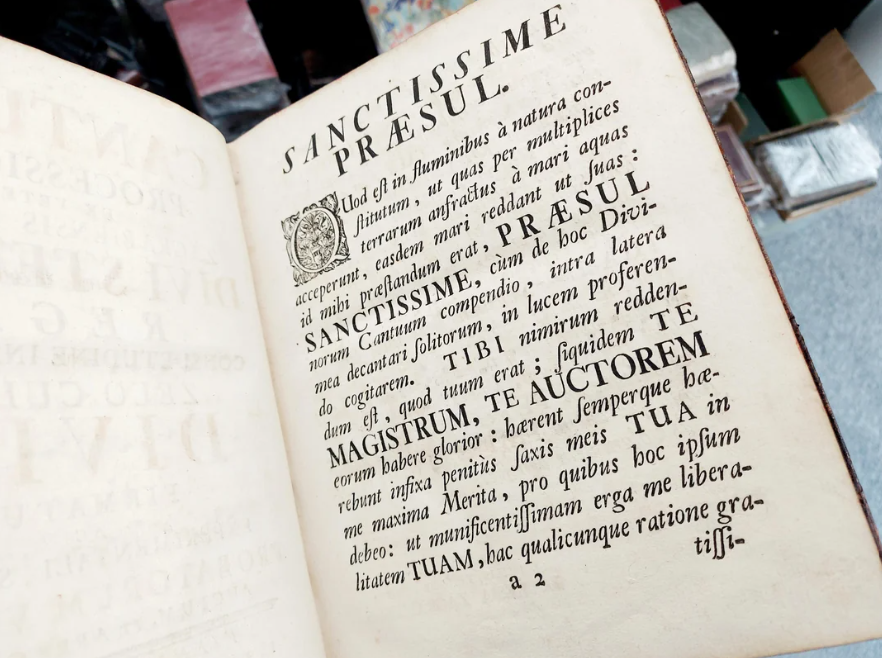 SANCTISSIME
PRÆSUL.
QUod eſt in fluminibus à natura con-
ſtitutum, ut quas per multiplices
terrarum anfractus à mari aquas
acceperunt, easdem mari reddant ut ſuas:
id mihi præſtandum erat, PRÆSUL
SANCTISSIME, cùm de hoc Divi-
norum Cantuum compendio, intra latera
mea decantari ſolitorum, in lucem proferen-
do cogitarem. TIBI nimirum redden-
dum eſt, quod tuum erat; ſiquidem TE
MAGISTRUM, TE AUCTOREM
eorum habere glorior: hærent ſemperque hæ-
rebunt infixa penitùs ſaxis meis TUA in
me maxima Merita, pro quibus hoc ipſum
debeo: ut munificentiſſimam erga me libera-
litatem TUAM, hac qualicunque ratione gra-
tiſſi-
a 2